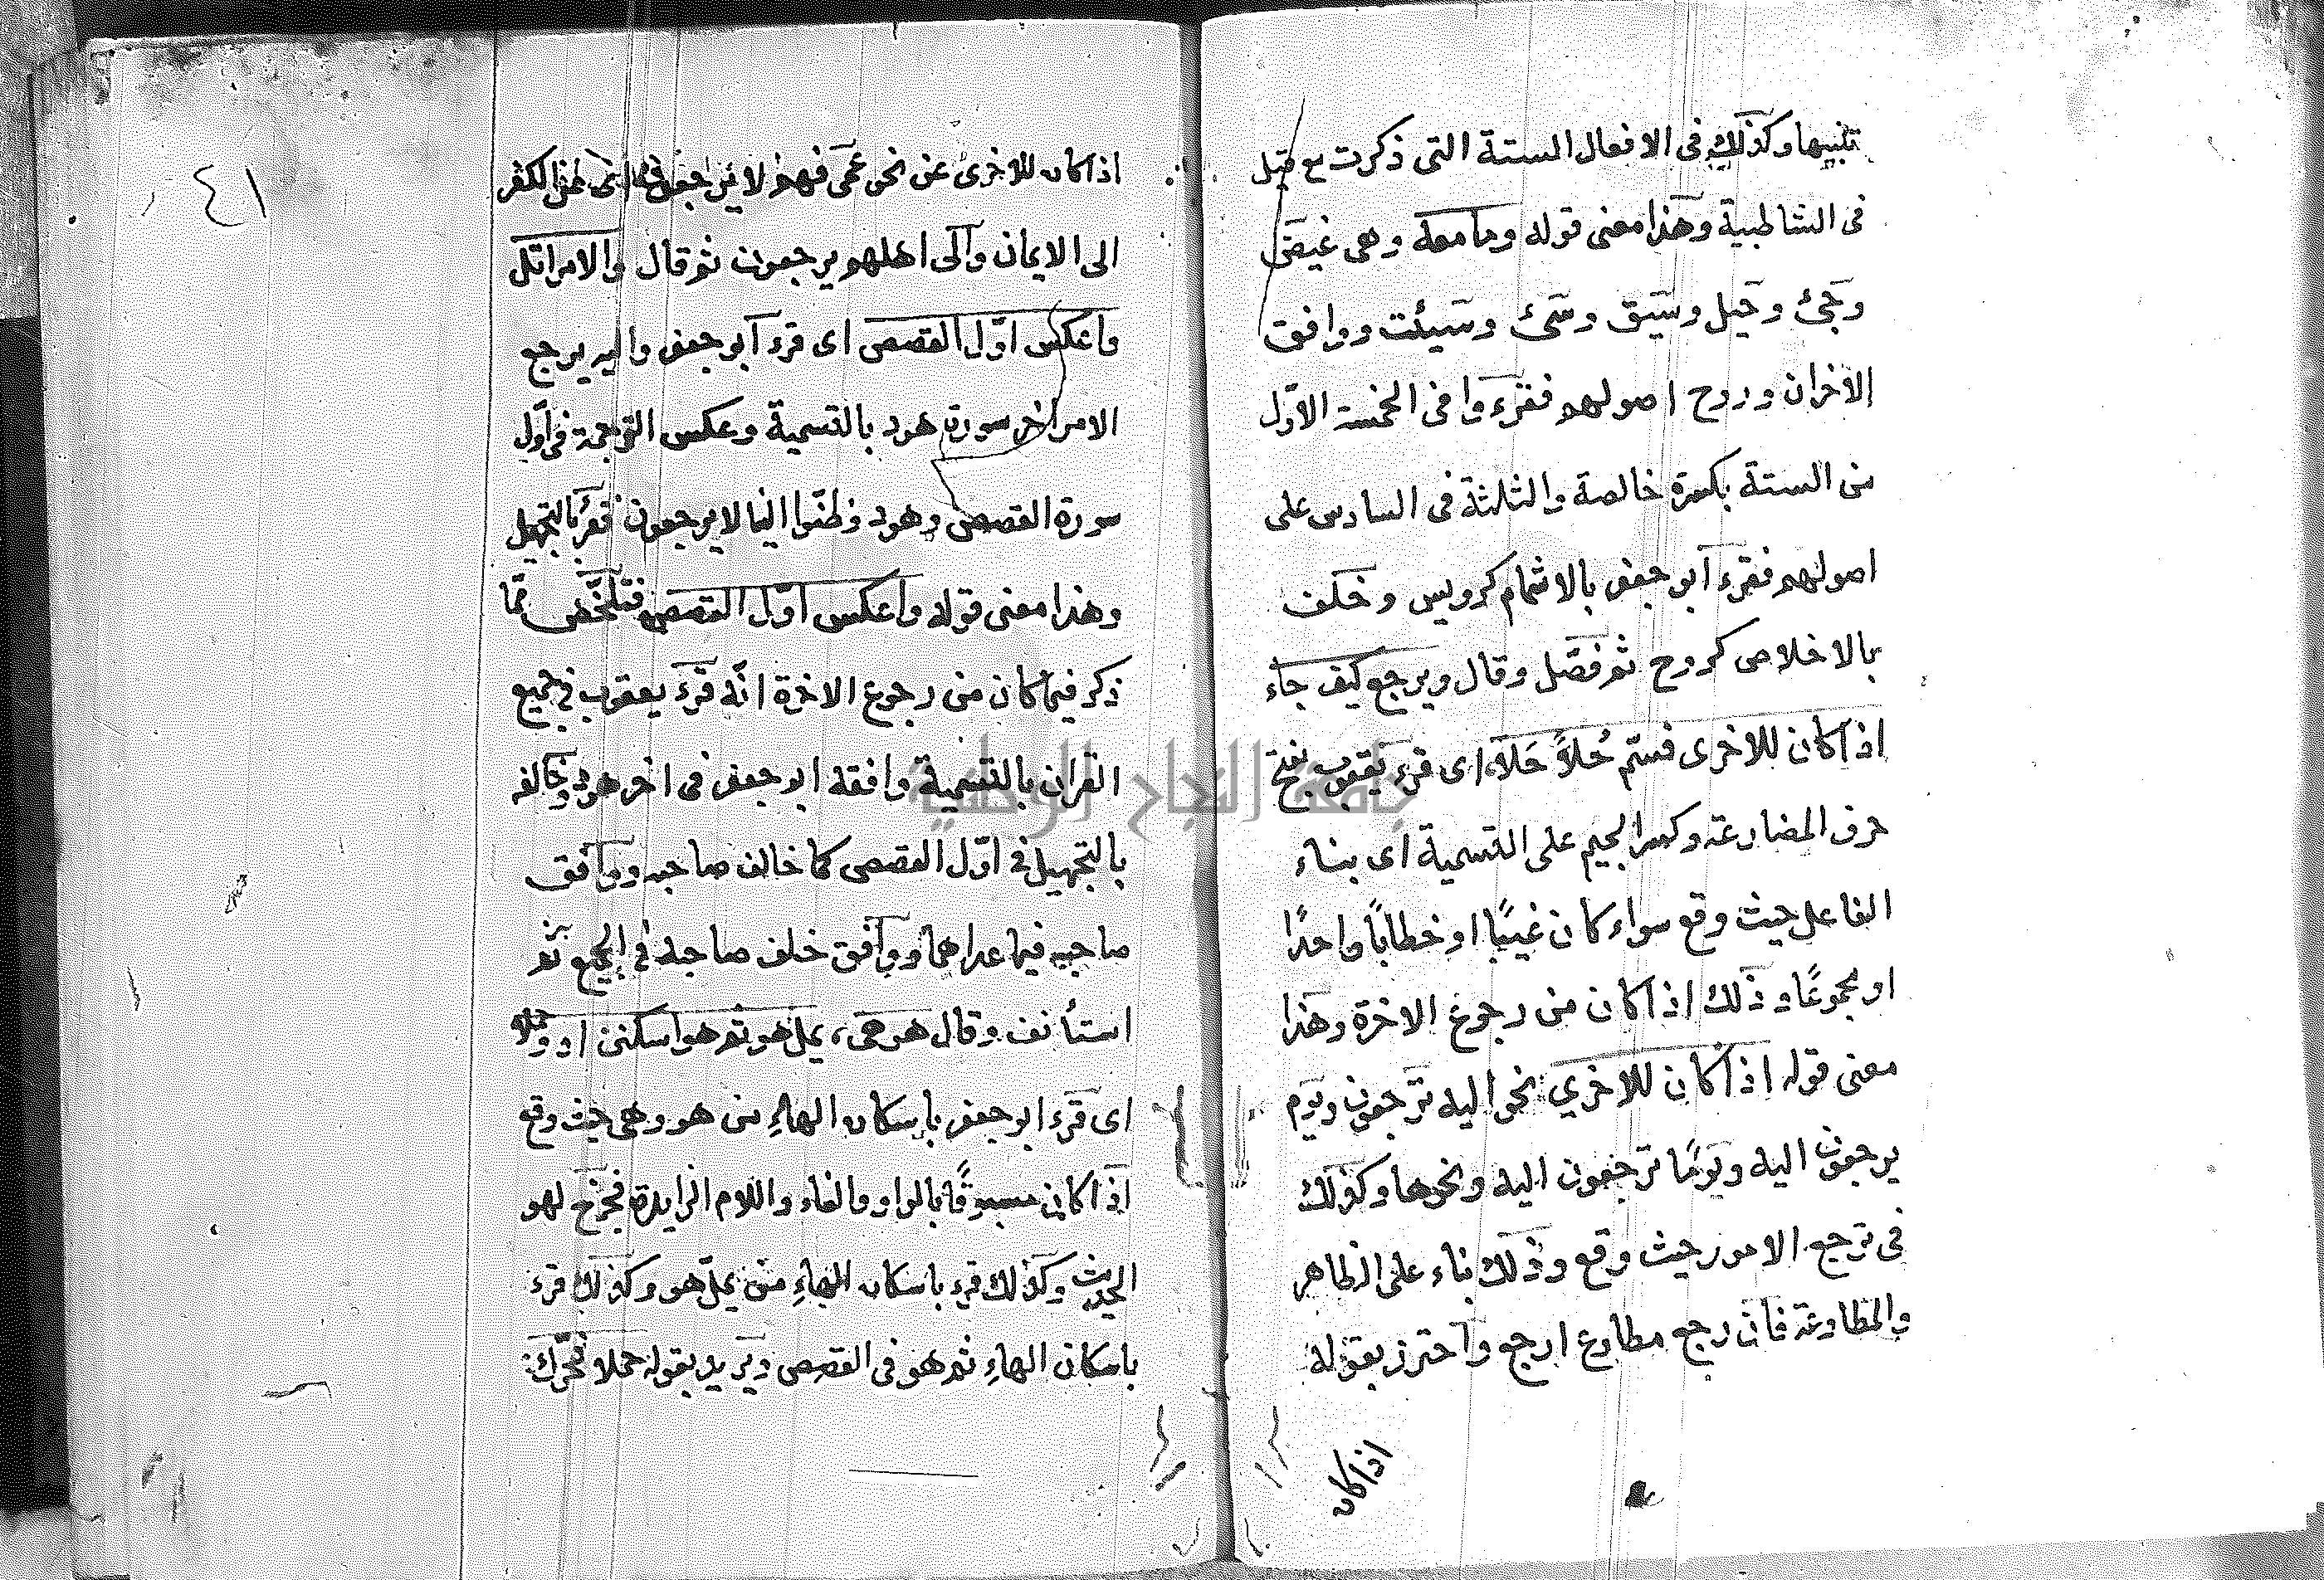 تنبيها وكذلك فى الافعال الستة التى ذكرت مع قيل
فى الشاطبية وهذا معنى قوله وما معه وهى غيض
وجئ وحيل وسيق وسئ وسيئت ووافق
الاخران وروح اصولهم فقرءوا فى الخمسة الاول
من الستة بكسرة خالصة والثلثة فى السادس على
اصولهم فقرء ابو جعفر بالاشمام كرويس وخلف
بالاخلاص كروح ثم فصّل وقال ويرجع كيف جاء
اذا كان للاخرى فسمّ حُلاً حَلا اى قرء يعقوب بفتح
حرف المضارعة وكسر الجيم على التسمية اى بناء
الفاعل حيث وقع سواء كان غيبًا او خطابًا واحدًا
او مجموعًا وذلك اذا كان من رجوع الاخرة وهذا
معنى قوله اذا كان للاخرى نحو اليه ترجعون ويوم
يرجعون اليه ويومًا ترجعون اليه ونحوها وكذلك
فى ترجع الامور حيث وقع وذلك بناء على الظاهر
والمطاوعة فان رجع مطاوع ارجع واحترز بقوله
اذا كان
٤١
اذا كان للاخرى عن نحو عمى فهم لا يرجعون
الى الايمان والى اهلهم يرجعون ثم قال والامر اتل
واعكس اوّل القصص اى قرء ابو جعفر واليه يرجع
الامر اخر سورة هود بالتسمية وعكس الترجمة فى اوّل
سورة القصص وهود وظنّوا الينا لا يرجعون فقرء بالتجهيل
وهذا معنى قوله واعكس اوّل القصص فتلخّص ممّا
ذكر فيما كان من رجوع الاخرة انّه قرء يعقوب فى جميع
القران بالتسمية وافقه ابو جعفر فى اخر هود وخالفه
بالتجهيل فى اوّل القصص كما خالف صاحبه ووافق
صاحبه فيما عداهما ووافق خلف صاحبه فى الجميع ثم
استأنف وقال هو هى، يمل هو ثم هو اسكنن اد وحملا
اى قرء ابو جعفر باسكان الهاءِ من هو وهى حيث وقع
اذا كان مسبوقًا بالواو والفاء واللام الزايدة فخرج لهو
الحديث وكذلك قرء باسكان الهاءِ من يملّ هو وكذلك قرء
باسكان الهاءِ ثم هو فى القصص ويريد بقوله حملا فحرّك
جامعة النجاح الوطنية